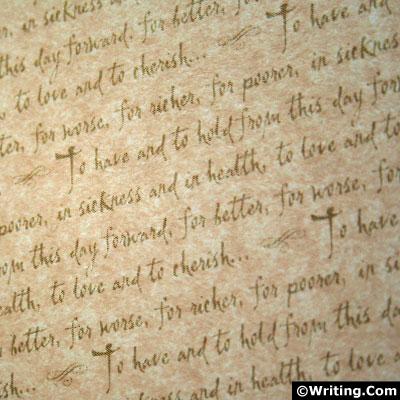 r, in sickness and
this day forward, for better, fo To have and
, to love and to cherish... To have and
tter, for worse, for richer, for poorer, in sickness
To have and to hold from this day for
poorer, in sickness and in health, to love and to
from this day forward, for better, for worse, for
ealth, to love and to cherish... To have
better, for worse, for richer, for poorer, in si
To have and to hold from this day
ish... in sickness and in health, to love a
©Writing.Com